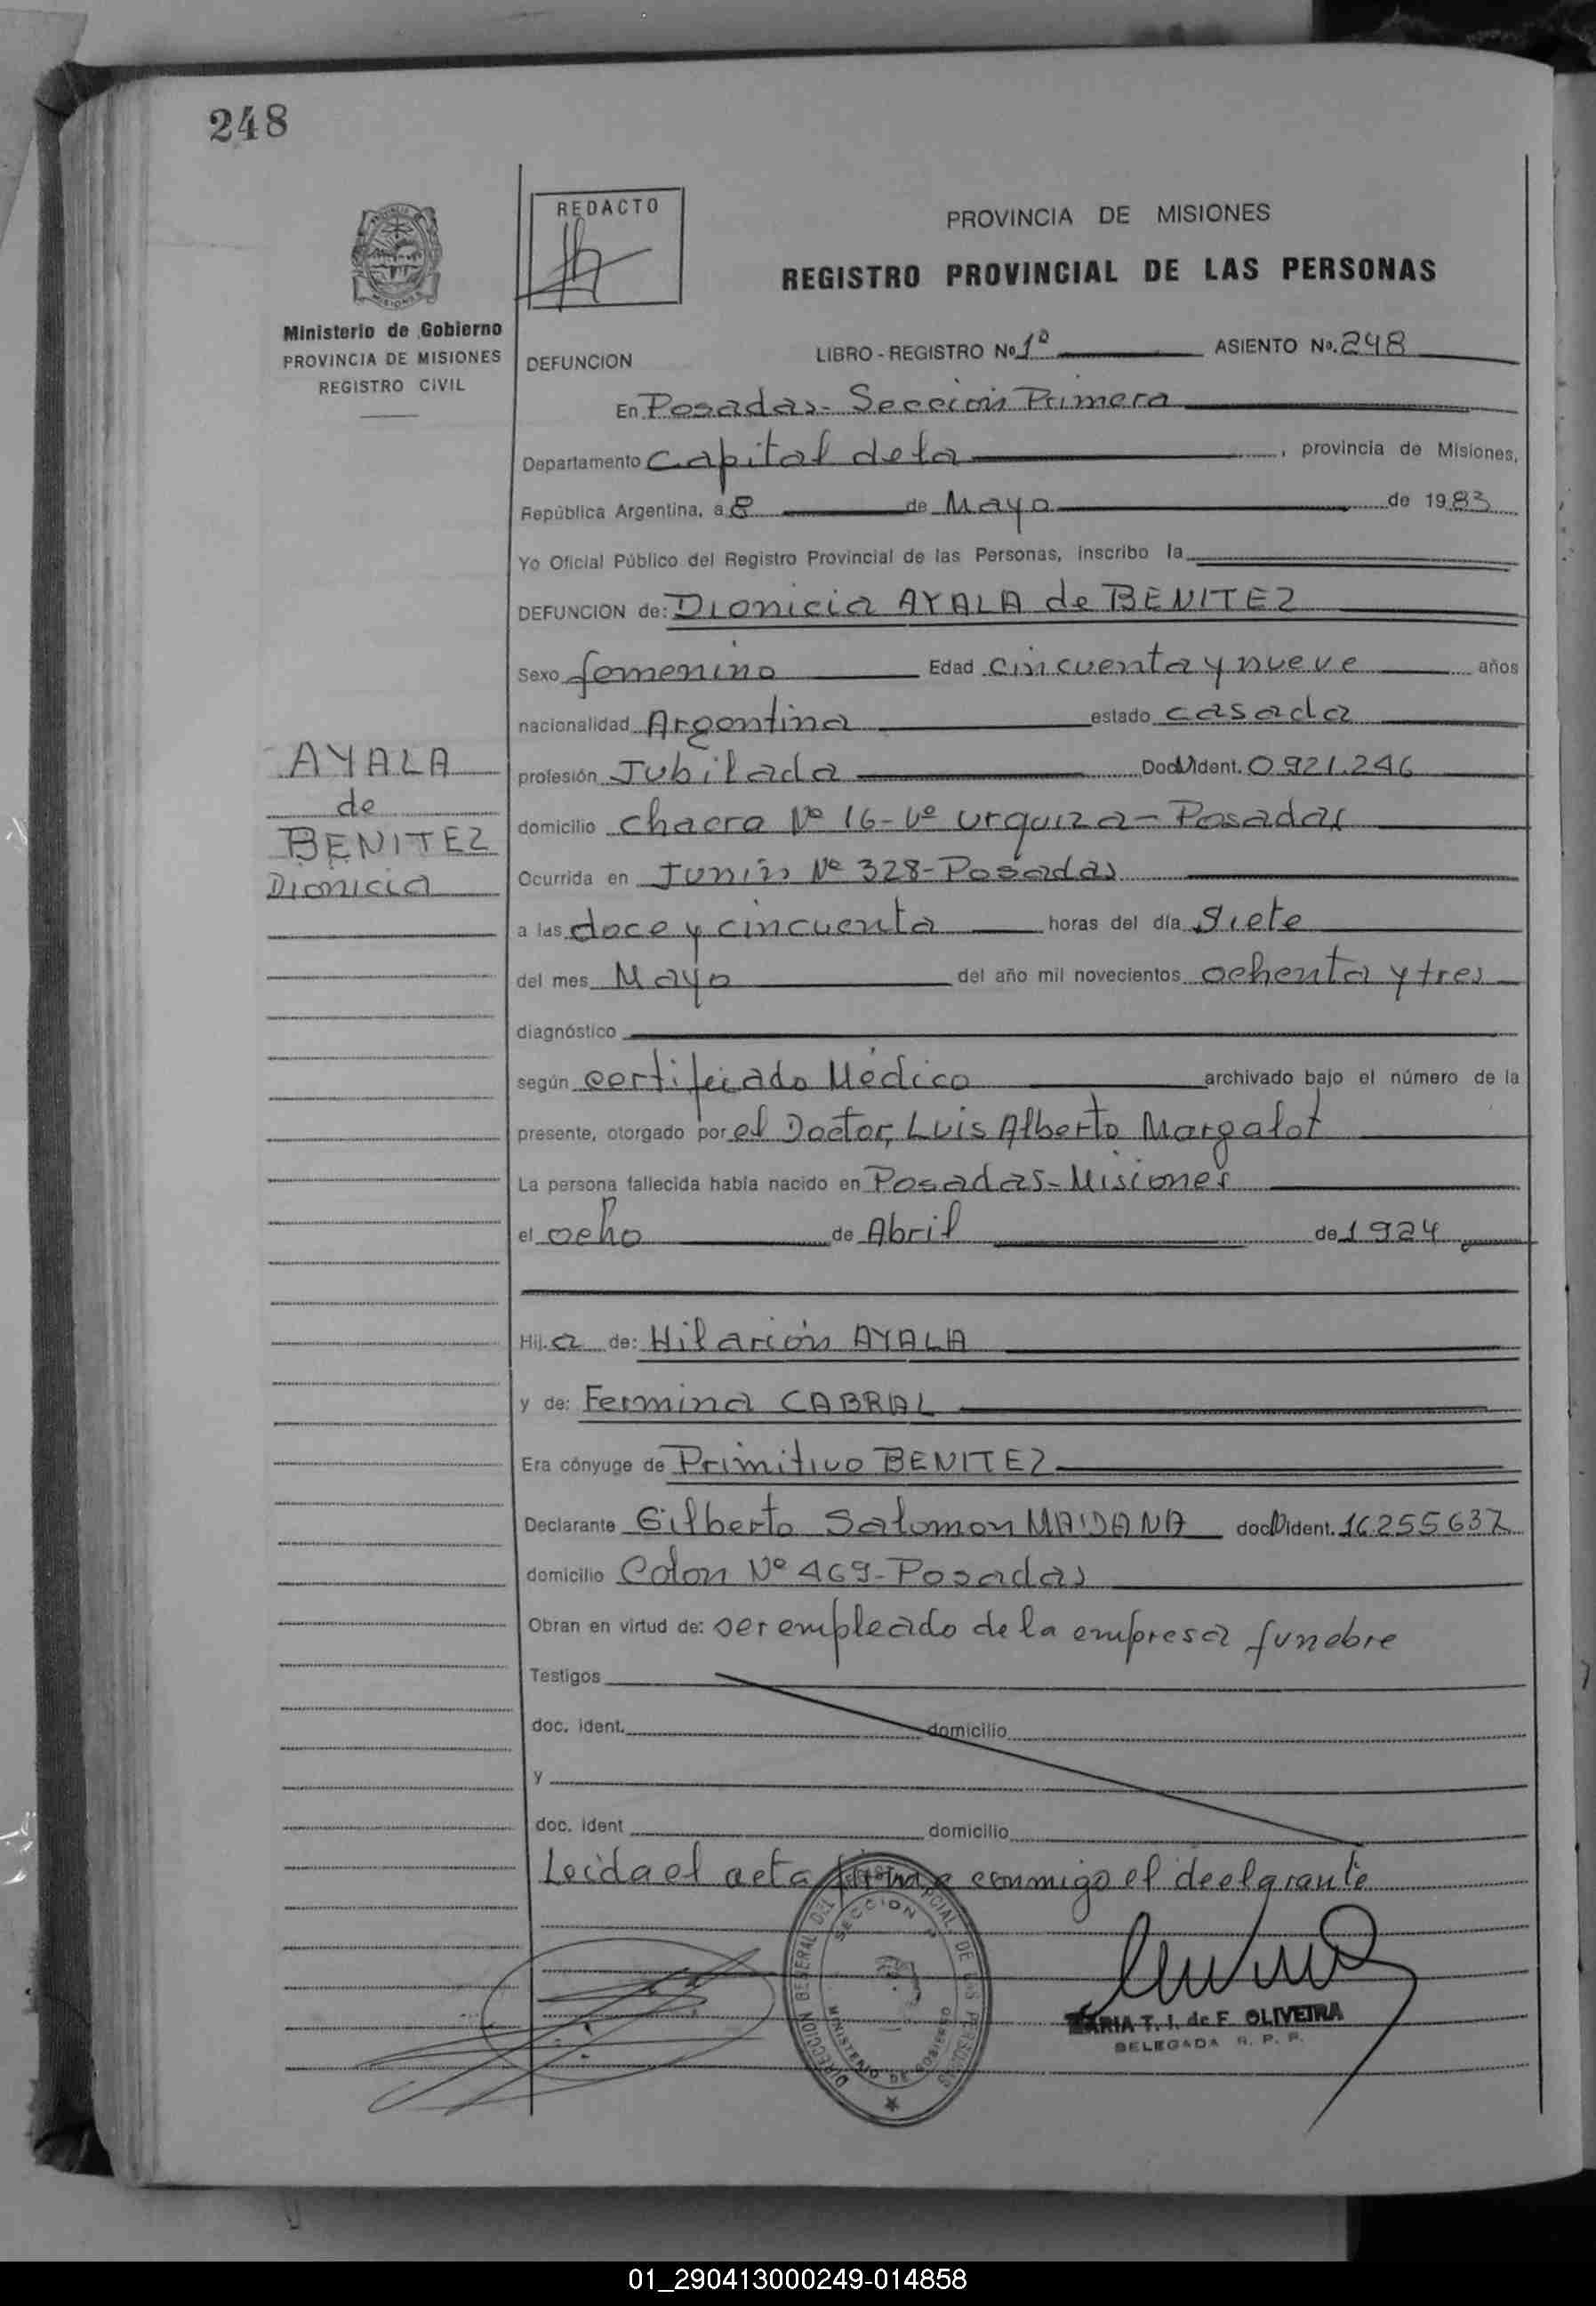 248
REDACTO
PROVINCIA DE MISIONES
REGISTRO PROVINCIAL DE LAS PERSONAS
Ministerio de Gobierno
PROVINCIA DE MISIONES
REGISTRO CIVIL
DEFUNCION LIBRO - REGISTRO No 1º ASIENTO No. 248
En Posadas - Sección Primera
Departamento Capital de la, provincia de Misiones,
República Argentina, a 8 de Mayo de 1983
Yo Oficial Público del Registro Provincial de las Personas, inscribo la
DEFUNCION de: Dionicia AYALA de BENITEZ
Sexo femenino Edad cincuenta y nueve años
nacionalidad Argentina estado casada
AYALA
de
BENITEZ
Dionicia
profesión Jubilada Doc. Ident. 0.921.246
domicilio chacra Nº 16 - Vº Urquiza - Posadas
Ocurrida en Junín Nº 328 - Posadas
a las doce y cincuenta horas del día Siete
del mes Mayo del año mil novecientos ochenta y tres
diagnóstico
según certificado Médico archivado bajo el número de la
presente, otorgado por el Doctor, Luis Alberto Margalot
La persona fallecida había nacido en Posadas - Misiones
el ocho de Abril de 1924
Hij.a de: Hilarión AYALA
y de: Fermina CABRAL
Era cónyuge de Primitivo BENITEZ
Declarante Gilberto Salomon MAIDANA doc. ident. 16.255.637
domicilio Colon Nº 469 - Posadas
Obran en virtud de: ser empleado de la empresa funebre
Testigos
doc. ident. domicilio
y
doc. ident domicilio
Leida el acta firma conmigo el declarante
DIRECCION GENERAL DEL REGISTRO PROVINCIAL DE LAS PERSONAS
SECCION 1ª
MINISTERIO DE GOBIERNO
MARIA T. I. de F. OLIVEIRA
DELEGADA R. P. P.
01_290413000249-014858